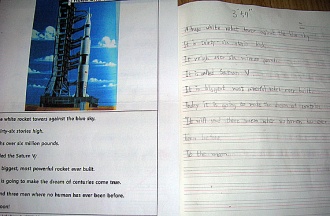 e white rocket towers against the blue sky.
irty-six stories high.
hs over six million pounds.
led the Saturn V.
biggest, most powerful rocket ever built.
is going to make the dream of centuries come true.
nd three men where no human has ever been before.
oon!
A huge white rocket tower against the blue sky
It is thirty six stories high.
It weigh over six million pounds.
It is called Saturn V
It is biggest most powerful rocket ever build
Today it is going to make the dream of centuries
It will send three men who no human has ever
been before
To the moon.